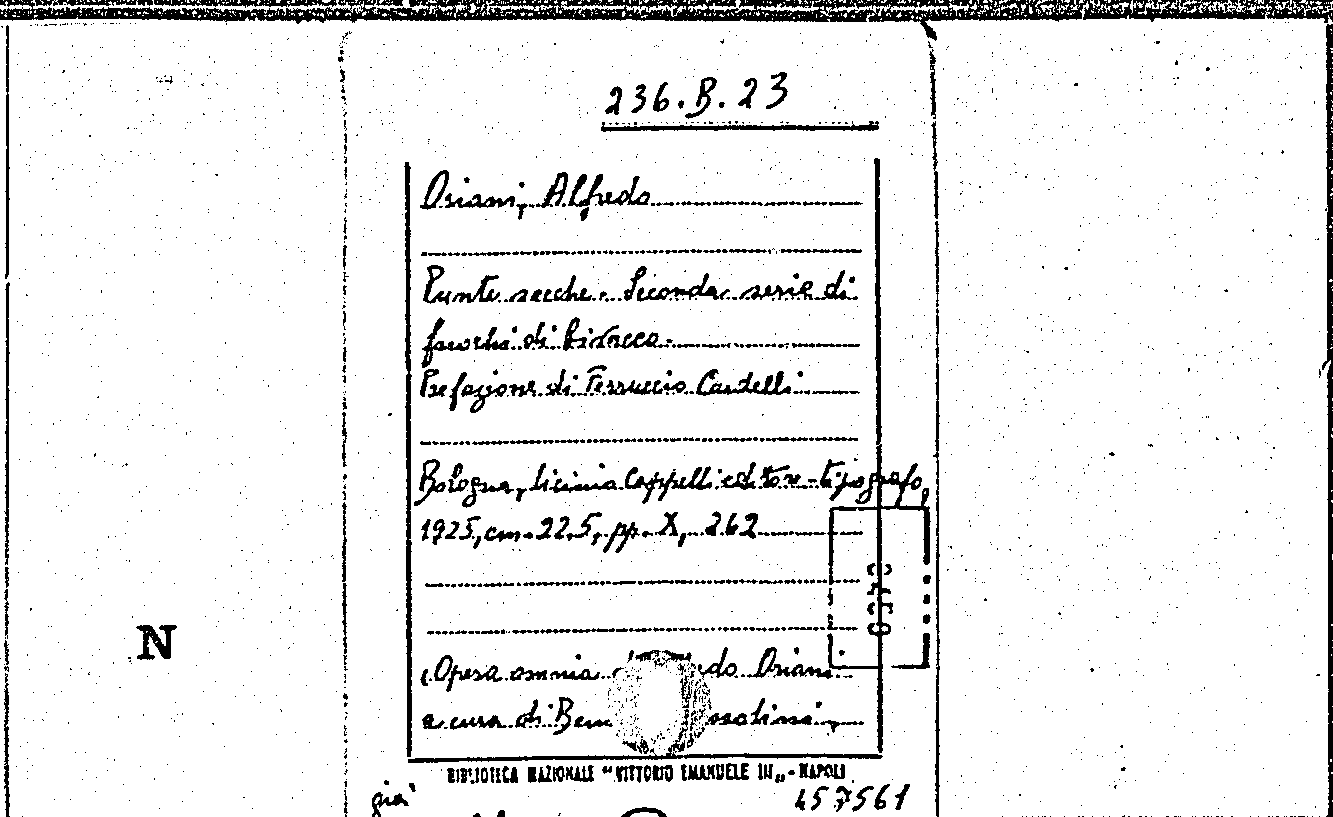 236.B.23
Oriani, Alfredo
Punte secche. Seconda serie di
fuochi di bivacco.
Prefazione di Ferruccio Cardelli
Bologna, Licinio Cappelli editore-tipografo,
1925, cm. 22.5, pp. X, 262
N
(Opera omnia Oriani
a cura di
BIBLIOTECA NAZIONALE "VITTORIO EMANUELE III" - NAPOLI
già
457561